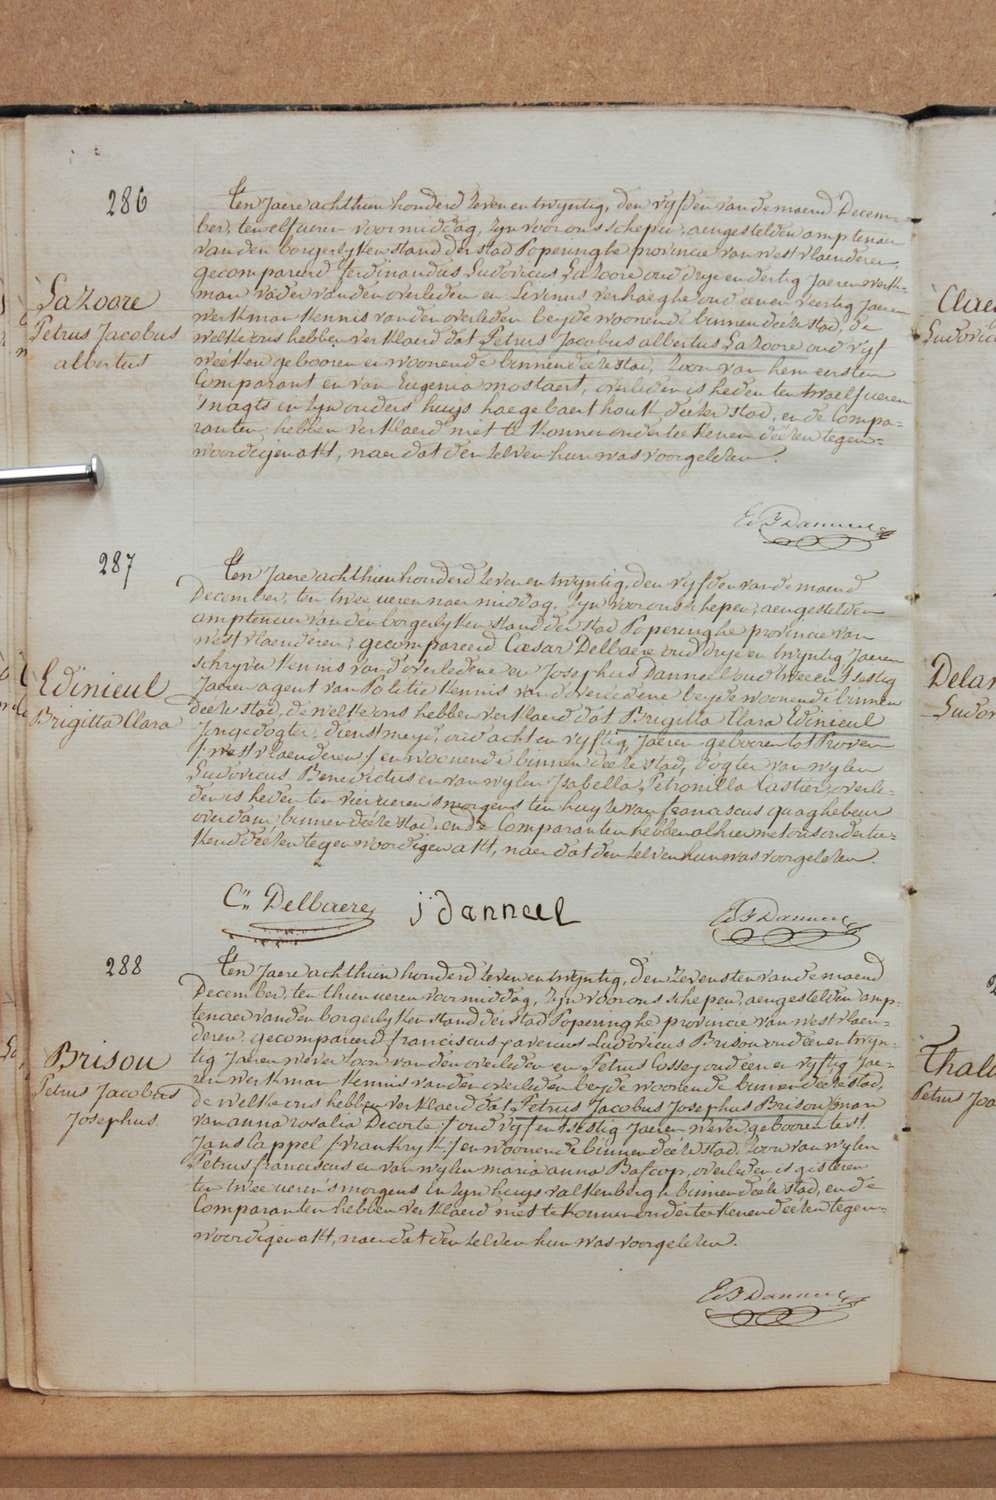 286
Lazoore
Petrus Jacobus
albertus
Ten Jaere achthien honderd zeven en twyntig, den vyfden van de maend Decem-
ber, ten elf ueren voormiddag, Zyn voor ons schepen, aengestelden amptenaer
van den borgerlyken stand der stad Poperinghe provincie van westvlaenderen,
gecompareerd ferdinandus Ludovicus Lazoore oud drye en dertig Jaeren werk-
man vader van den overleden en Livinus verhaeghe oud eenen veertig Jaeren
werkman Kennis van den overleden beyde woonende binnen deeze stad, de
welke ons hebben verklaerd dat Petrus Jacobus albertus Lazoore oud vyf
weeken gebooren en woonende binnen deeze stad, Zoon van hem eersten
Comparant en van Eugenia mostaert, overleden is heden ten twaelf ueren
'snagts in zyn ouders huys haegebaerthoek deezer stad, en de Compa-
ranten hebben verklaerd niet te konnen onderteekenen deezen tegen-
woordigen akt, naer dat den zelven hun was voorgelezen.
287
Edinieul
Brigitta Clara
Ten Jaere achthien honderd zeven en twyntig, den vyfden van de maend
December, ten twee ueren naer middag, Zyn voor ons schepen, aengestelden
amptenaer van den borgerlyken stand der stad Poperinghe provincie van
westvlaenderen, gecompareerd Cæsar Delbaere oud drye en twyntig Jaeren
schryver Kennis van d'overledene en Josephus Danneel oud twee en sestig
Jaeren agent van Politie Kennis van d'overledene beyde woonende binnen
deeze stad, de welke ons hebben verklaerd dat Brigitta Clara Edinieul
Jongedogter, dienstmeyd, oud acht en vyftig Jaeren gebooren tot Proven
(westvlaenderen) en woonende binnen deeze stad, dogter van wylen
Ludovicus Benedictus en van wylen Isabella Petronilla Castier, overle-
den is heden ten vier ueren smorgens ten huyze van franciscus quaghebeur
overdam binnen deeze stad, en de Comparanten hebben alhier met ons onderteec-
kend deezen tegenwoordigen akt, naer dat den zelven hun was voorgelezen.
Cr. Delbaere
j danneel
288
Brisou
Petrus Jacobus
Josephus
Ten Jaere achthien honderd zeven en twyntig, den zevensten van de maend
December, ten thien ueren voormiddag, Zyn voor ons schepen, aengestelden amp-
tenaer van den borgerlyken stand der stad Poperinghe provincie van westvlaen-
deren, gecompareerd franciscus xaverius Ludovicus Brisou oud een en twyn-
tig Jaeren wever Zoon van den overleden en Petrus Cossey oud een en vyftig Jae-
ren werkman Kennis van den overleden beyde woonende binnen deeze stad,
de welke ons hebben verklaerd dat Petrus Jacobus Josephus Brisou (man
van anna rosalia Decorte) oud vyf en sestig Jaeren wever gebooren te St.
Jans Cappel (vrankryk) en woonende binnen deeze stad, Zoon van wylen
Petrus franciscus en van wylen maria anna Bafcop, overleden is gisteren
ten twee ueren 's morgens in zyn huys valkenberg binnen deeze stad, en de
Comparanten hebben verklaerd niet te konnen onderteekenen deezen tegen-
woordigen akt, naer dat den zelven hun was voorgelezen.
Ludovic
Petrus Joa